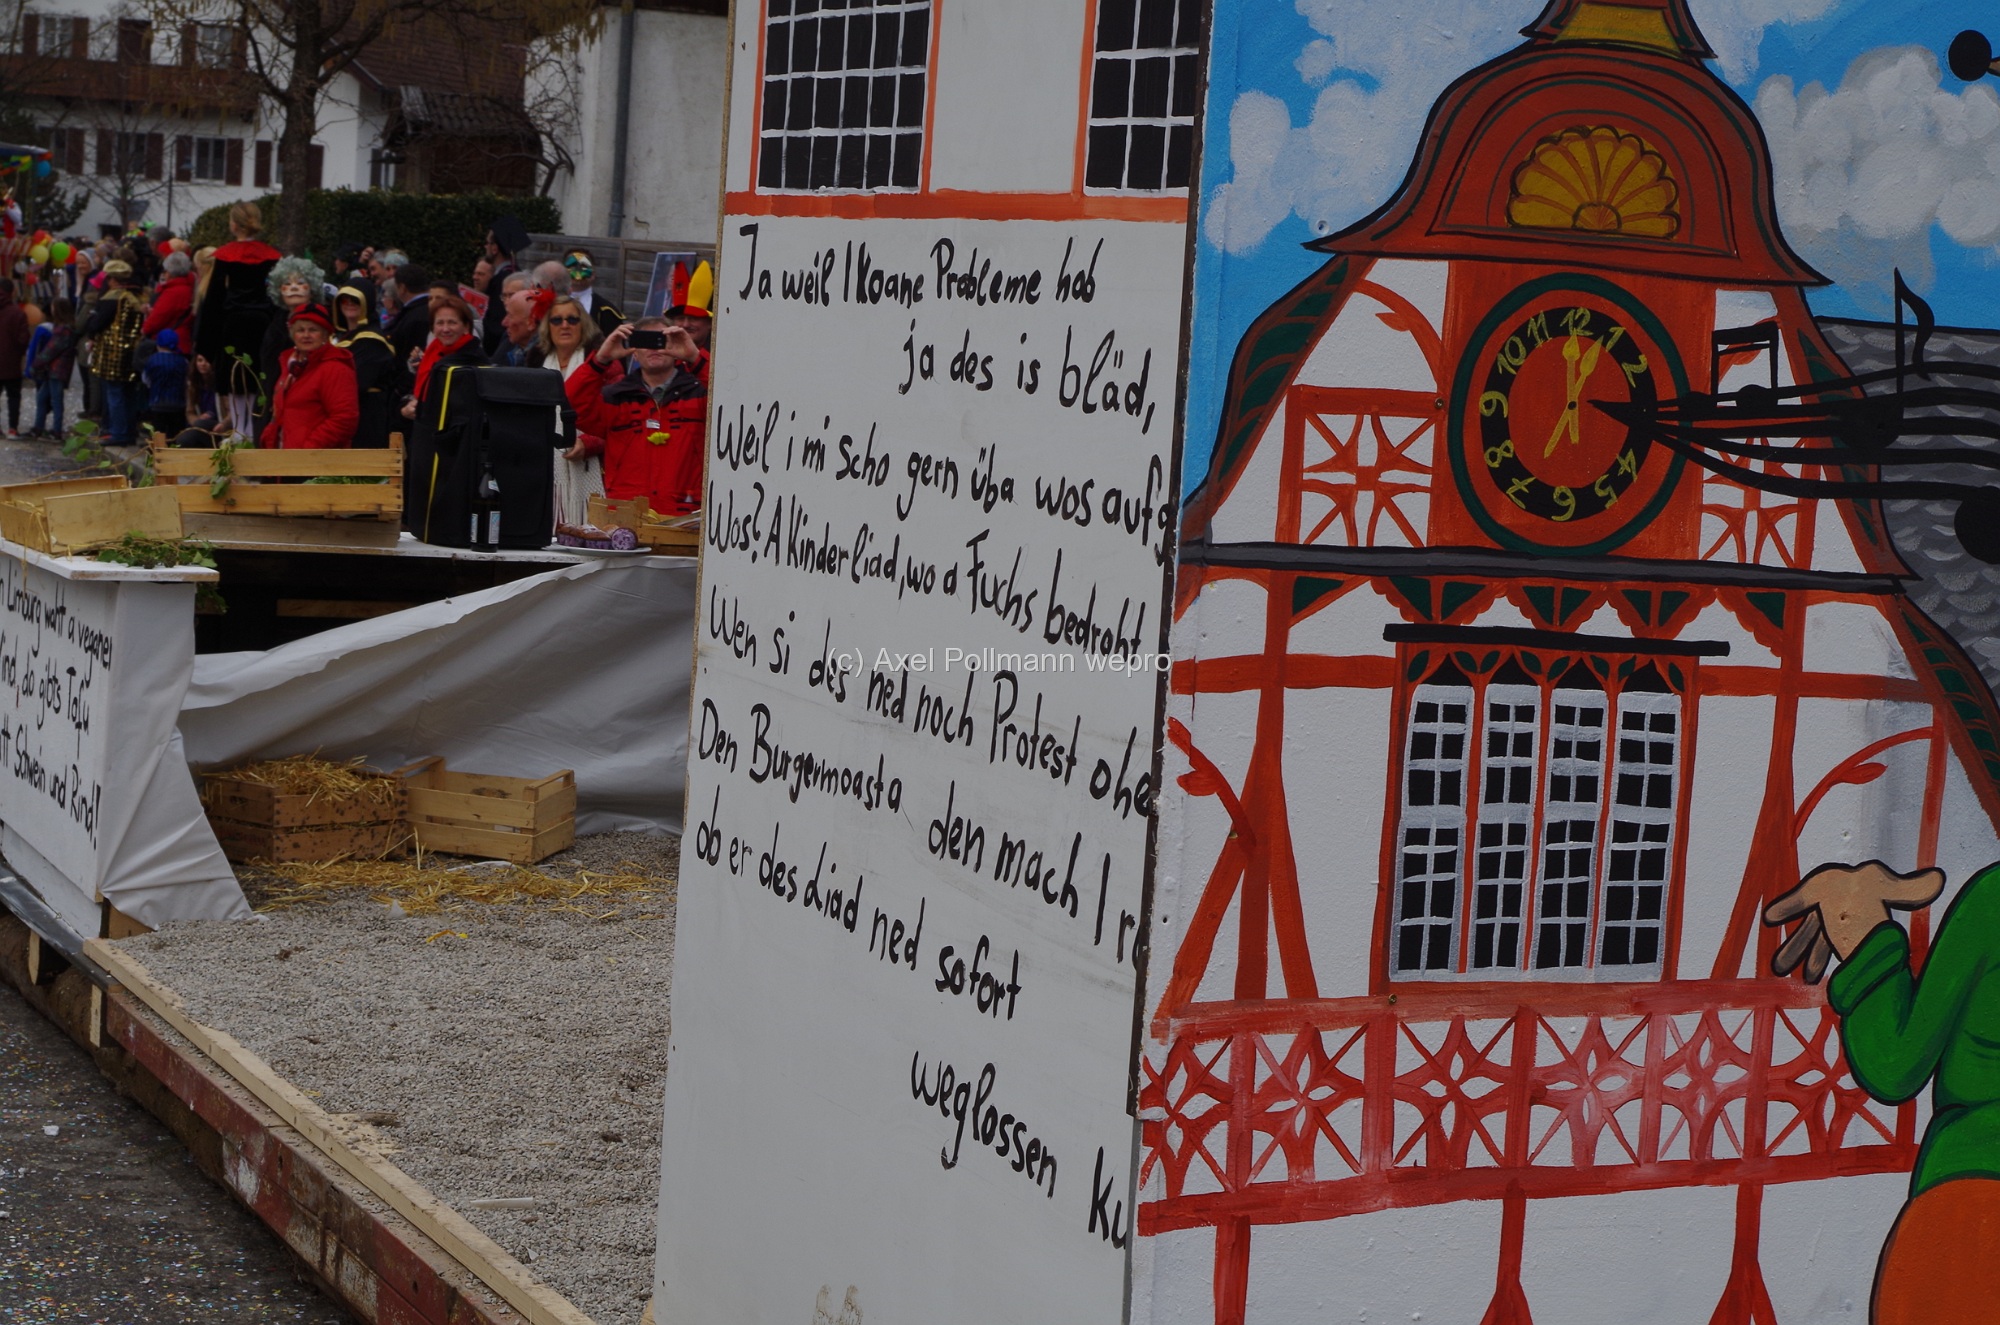 Ja weil I koane Probleme hob
ja des is bläd,
Weil i mi scho gern üba wos aufg
Wos? A Kinderliad, wo d Fuchs bedroht
Wen si des ned noch Protest ohe
Den Burgermoasta den mach I r
ob er des Liad ned sofort
weglossen ku
n Limburg woht a veganer
ind, do gibts Tofu
tt Schwein und Rind!
10 11 12 1 2 4 5 6 7 8 9
(c) Axel Pollmann wepro